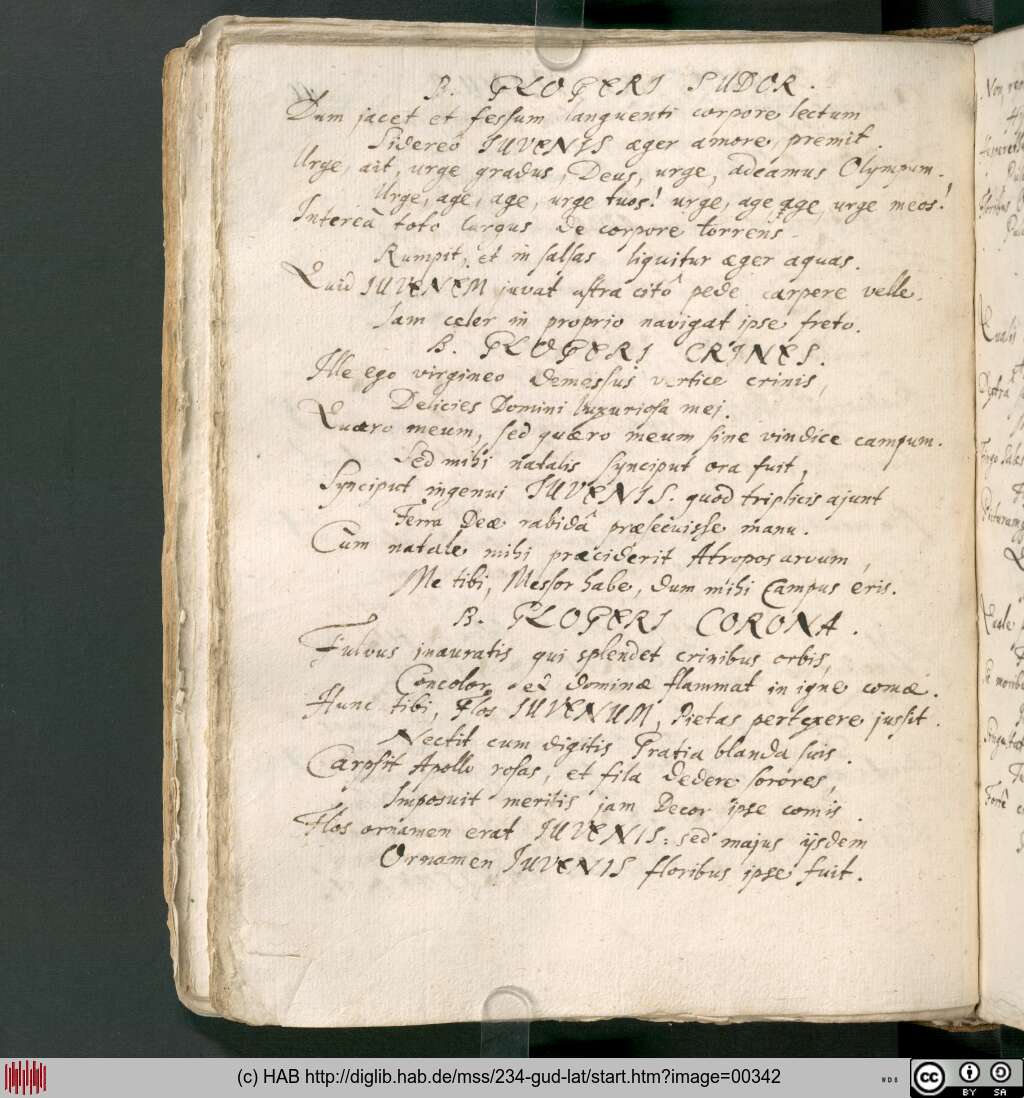 B. GLOGERI SUDOR.
Dum jacet et fessum languenti corpore lectum
Sidereô IUVENIS æger amore, premit.
Urge, ait, urge gradus, Deus, urge, adeamus Olympum.
Urge, age, age, urge tuos! urge, age age, urge meos!
Intereà toto largus de corpore torrens
Rumpit, et in salsas liquitur æger aquas.
Quid IUVENEM juvat astra citô pede carpere velle.
Jam celer in proprio navigat ipse freto.
B. GLOGERI CRINES.
Ille ego virgineo demessus vertice crinis,
Delicies Domini luxuriosa mei.
Quæro meum, sed quæro meum sine vindice campum.
Sed mihi natalis synciput ora fuit,
Synciput ingenui IUVENIS. quod triplicis ajunt
Ferra Deæ rabidâ præsecuisse manu.
Cùm natale mihi præciderit Atropos arvum,
Me tibi, Messor habe, dum mihi Campus eris.
B. GLOGERI CORONA.
Fulvus inauratis qui splendet crinibus orbis,
Concolor et dominæ flammat in igne comæ.
Hunc tibi, Flos IUVENUM, Pietas pertexere jussit.
Nectit cum digitis Gratia blanda suis.
Carpsit Apollo rosas, et fila dedere sorores,
Imposuit meritis jam Decor ipse comis.
Flos ornamen erat IUVENIS: sed majus ijsdem
Ornamen IUVENIS floribus ipse fuit.
(c) HAB http://diglib.hab.de/mss/234-gud-lat/start.htm?image=00342
cc BY SA